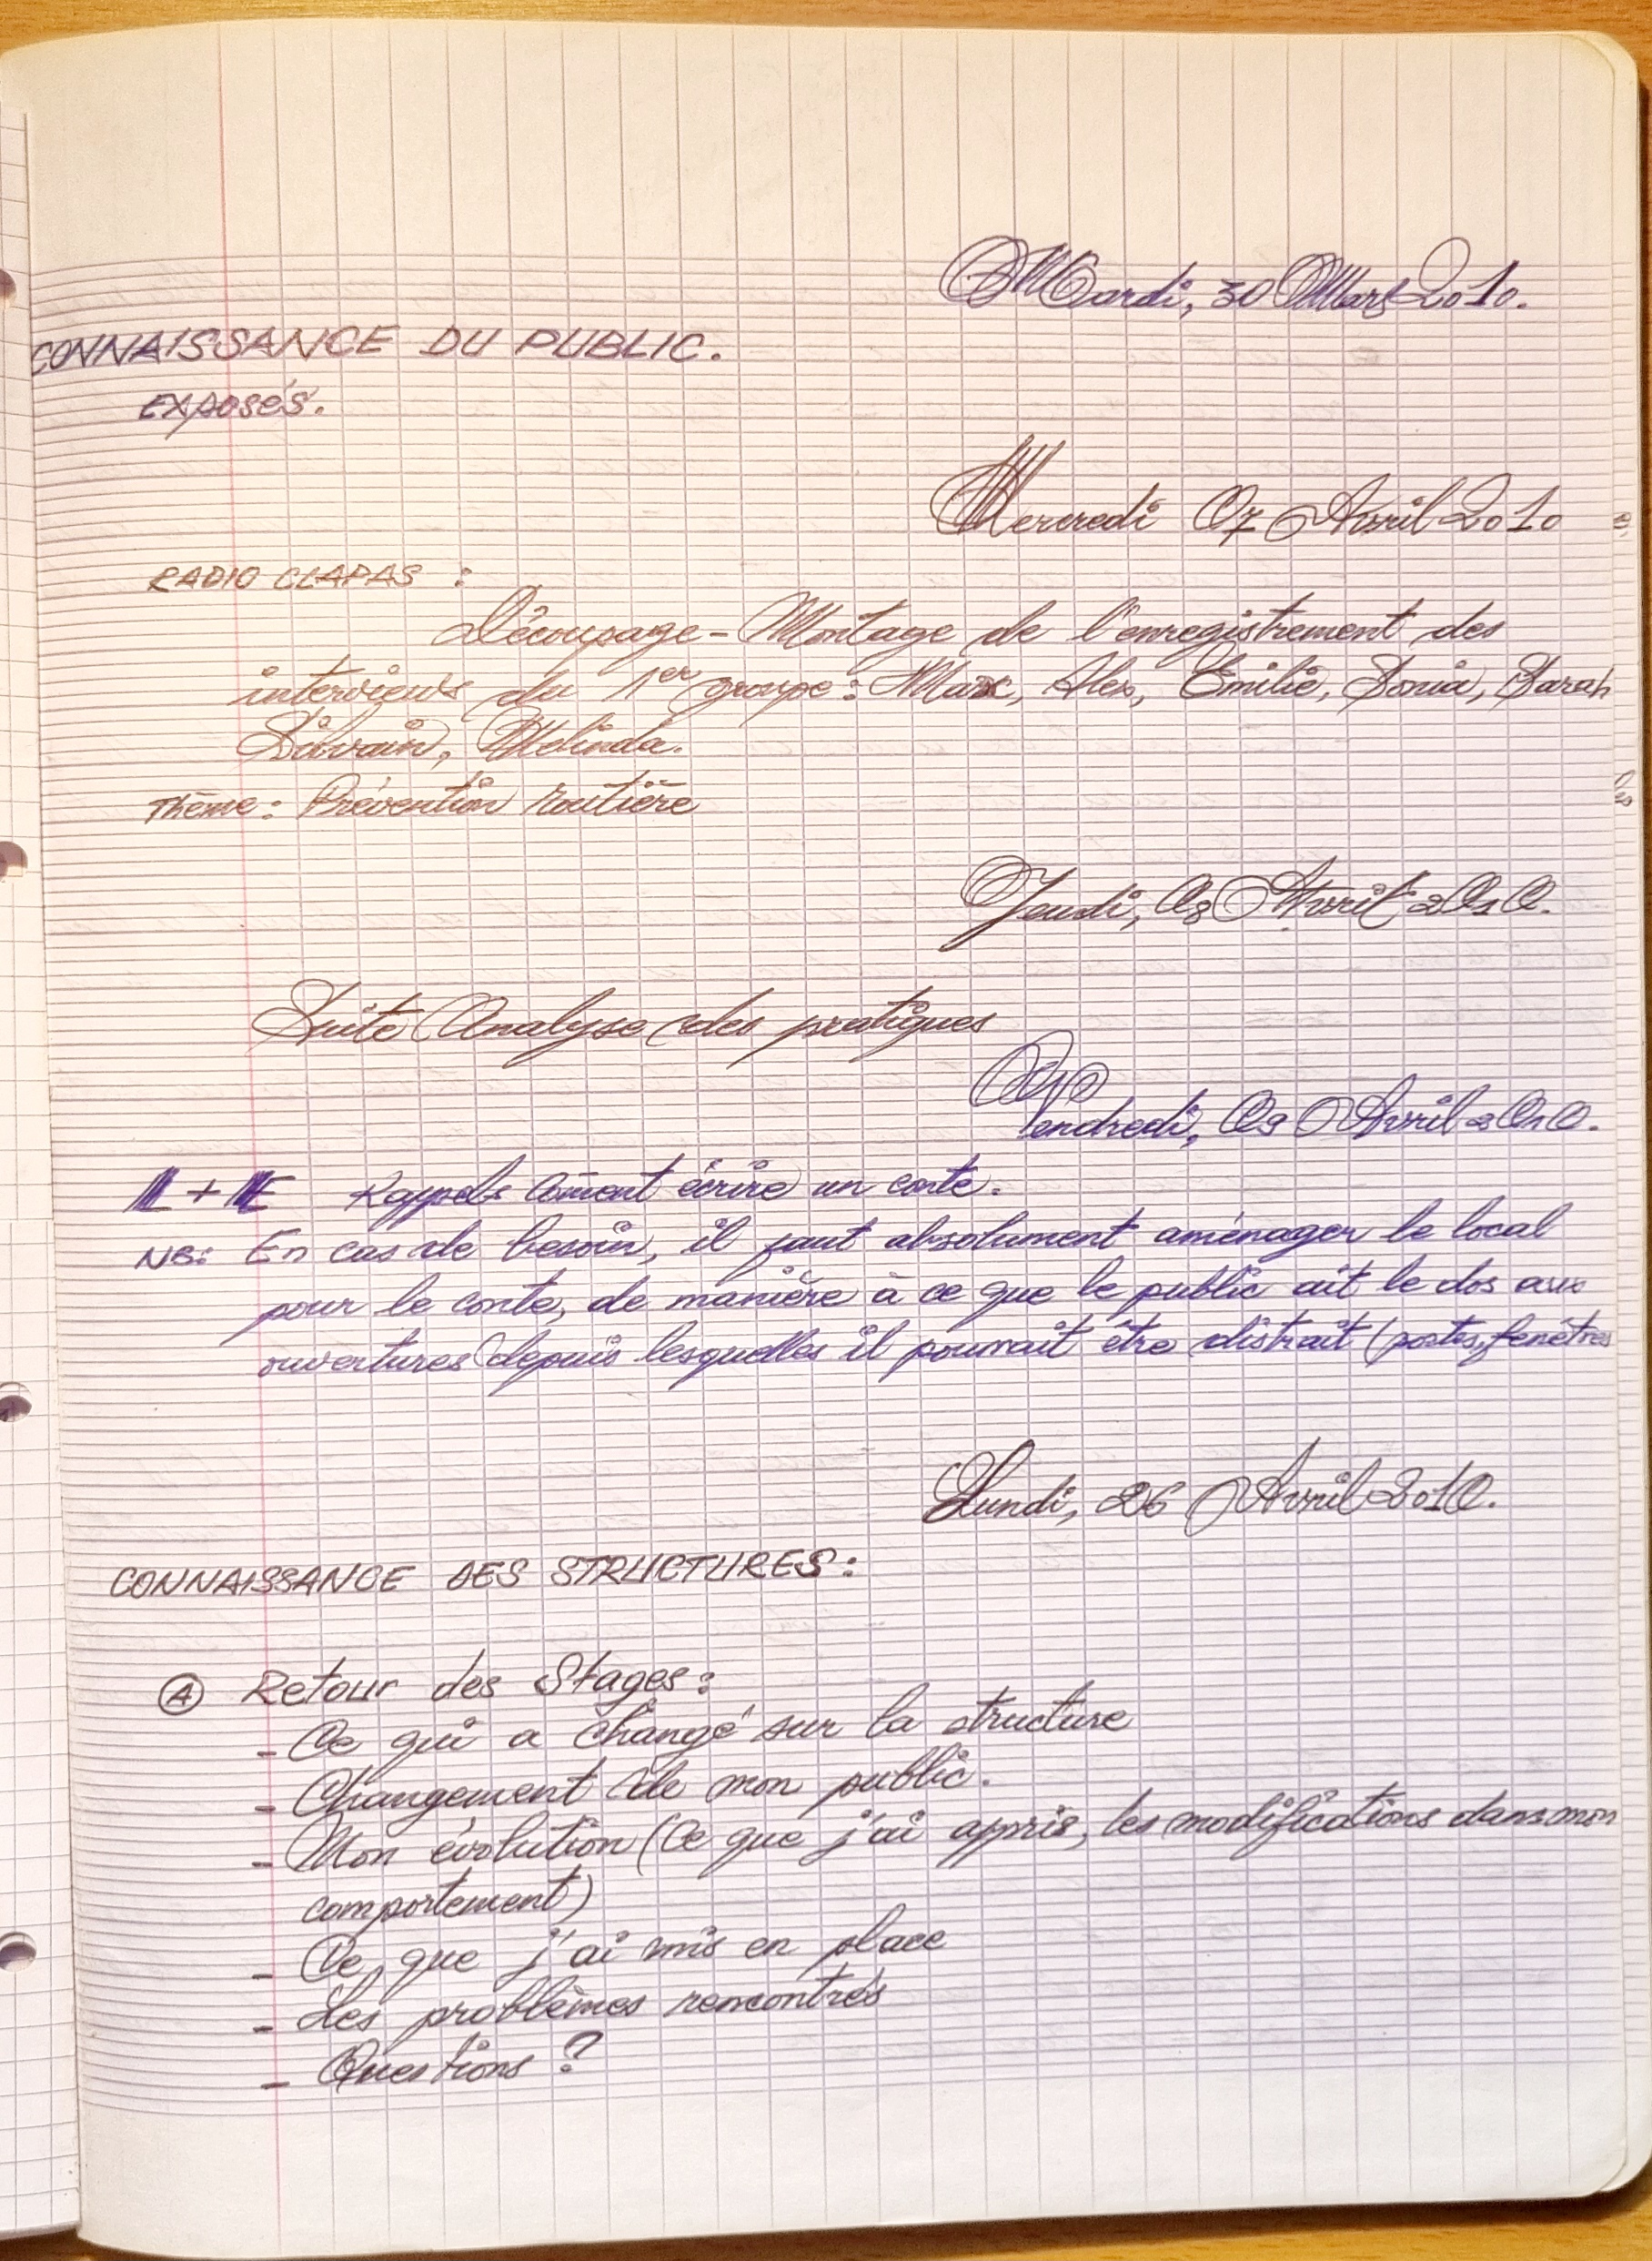 Mardi, 30 Mars 2010.
CONNAISSANCE DU PUBLIC.
EXPOSÉS.
Mercredi 07 Avril 2010
RADIO CLAPAS :
Découpage - Montage de l'enregistrement des
interviews du 1er groupe : Marc, Alex, Émilie, Sonia, Sarah
Silvain, Melinda.
Thème : Prévention routière
Jeudi, 08 Avril 2010.
Suite Analyse des pratiques
Vendredi, 09 Avril 2010.
L + E Rappels Coment écrire un conte.
NB: En cas de besoin, il faut absolument aménager le local
pour le conte, de manière à ce que le public ait le dos aux
ouvertures depuis lesquelles il pourrait être distrait (portes, fenêtres
Lundi, 26 Avril 2010.
CONNAISSANCE DES STRUCTURES :
A Retour des Stages :
- Ce qui a changé sur la structure
- Changement de mon public.
- Mon évolution (Ce que j'ai appris, les modifications dans mon
comportement)
- Ce que j'ai mis en place
- Les problèmes rencontrés
- Questions ?